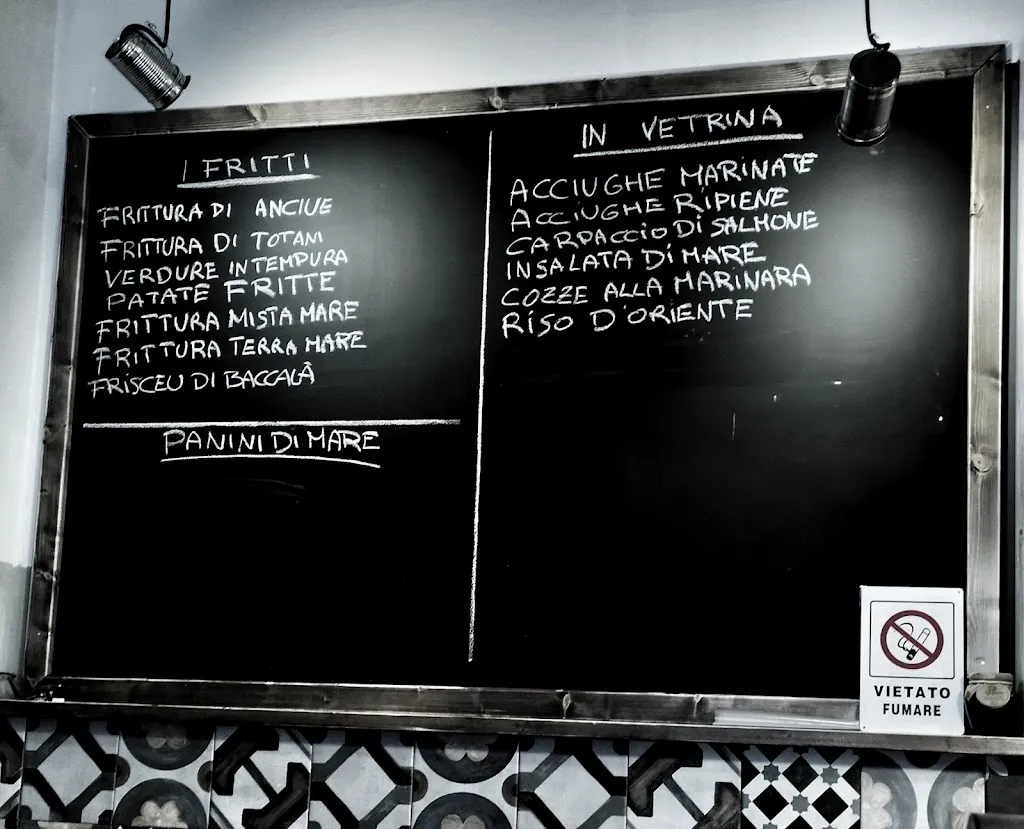 I FRITTI
FRITTURA DI ANCIUE
FRITTURA DI TOTANI
VERDURE IN TEMPURA
PATATE FRITTE
FRITTURA MISTA MARE
FRITTURA TERRA MARE
FRISCEU DI BACCALÀ
PANINI DI MARE
IN VETRINA
ACCIUGHE MARINATE
ACCIUGHE RIPIENE
CARPACCIO DI SALMONE
INSALATA DI MARE
COZZE ALLA MARINARA
RISO D'ORIENTE
VIETATO
FUMARE